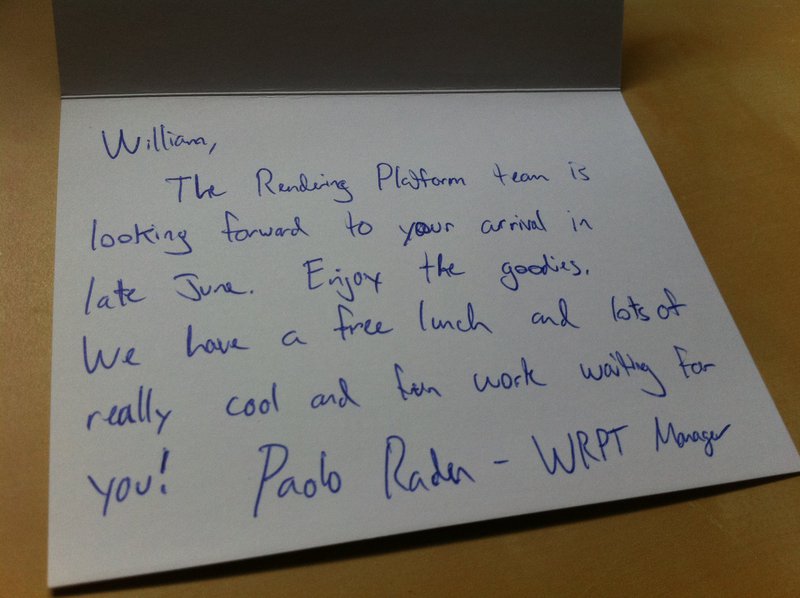 William,
The Rendering Platform team is
looking forward to your arrival in
late June. Enjoy the goodies.
We have a free lunch and lots of
really cool and fun work waiting for
you! Paolo Raden - WRPT Manager